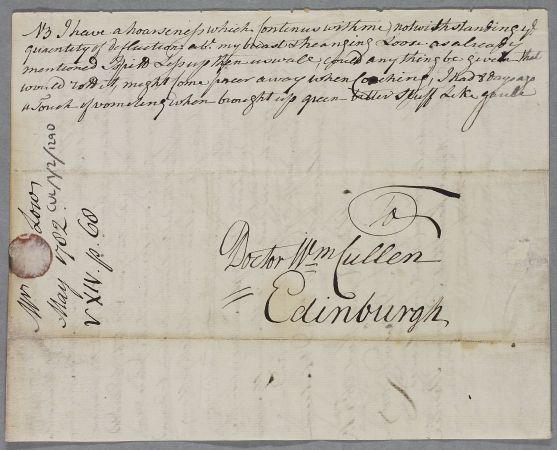 N3 I have a hoarseness which Continues with me) notwithstanding ye
quantity of defluction abt. my breast & hanging Loose as already
mentioned I Spitt Less up then usuale, could any thing be given that
would it might Come freer away when Coaching, I had 8 days ago
a Touch of vometing when brought up green bitter Stuff Like gaulle
To
Doctor Wm Cullen
Edinburgh
Mr Low
May 1782
V XIV p. 68
CUL N2/1290